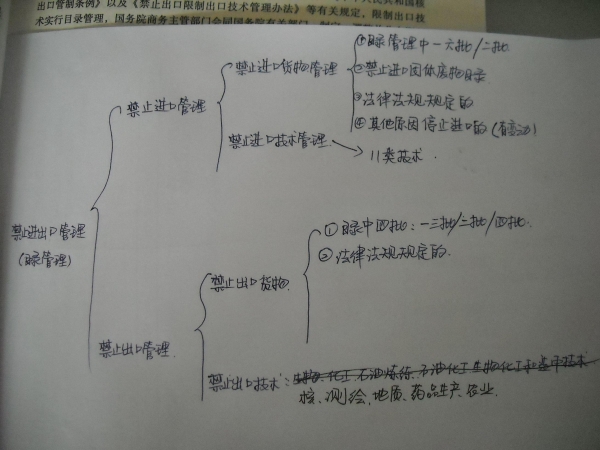 出口管制条例》以及《禁止出口限制出口技术管理办法》等有关规定，限制出口技
术实行目录管理，国务院商务主管部门会同国务院有关部门
禁止进出口管理
(目录管理)
禁止进口管理
禁止进口货物管理
①目录管理中一六批/二批
②禁止进口固体废物目录
③法律法规规定的
④其他原因停止进口的(有变动)
禁止进口技术管理
11类技术.
禁止出口管理
禁止出口货物
①目录中四批:一三批/二批/四批.
②法律法规规定的.
禁止出口技术:
核、测绘、地质、药品生产、农业.